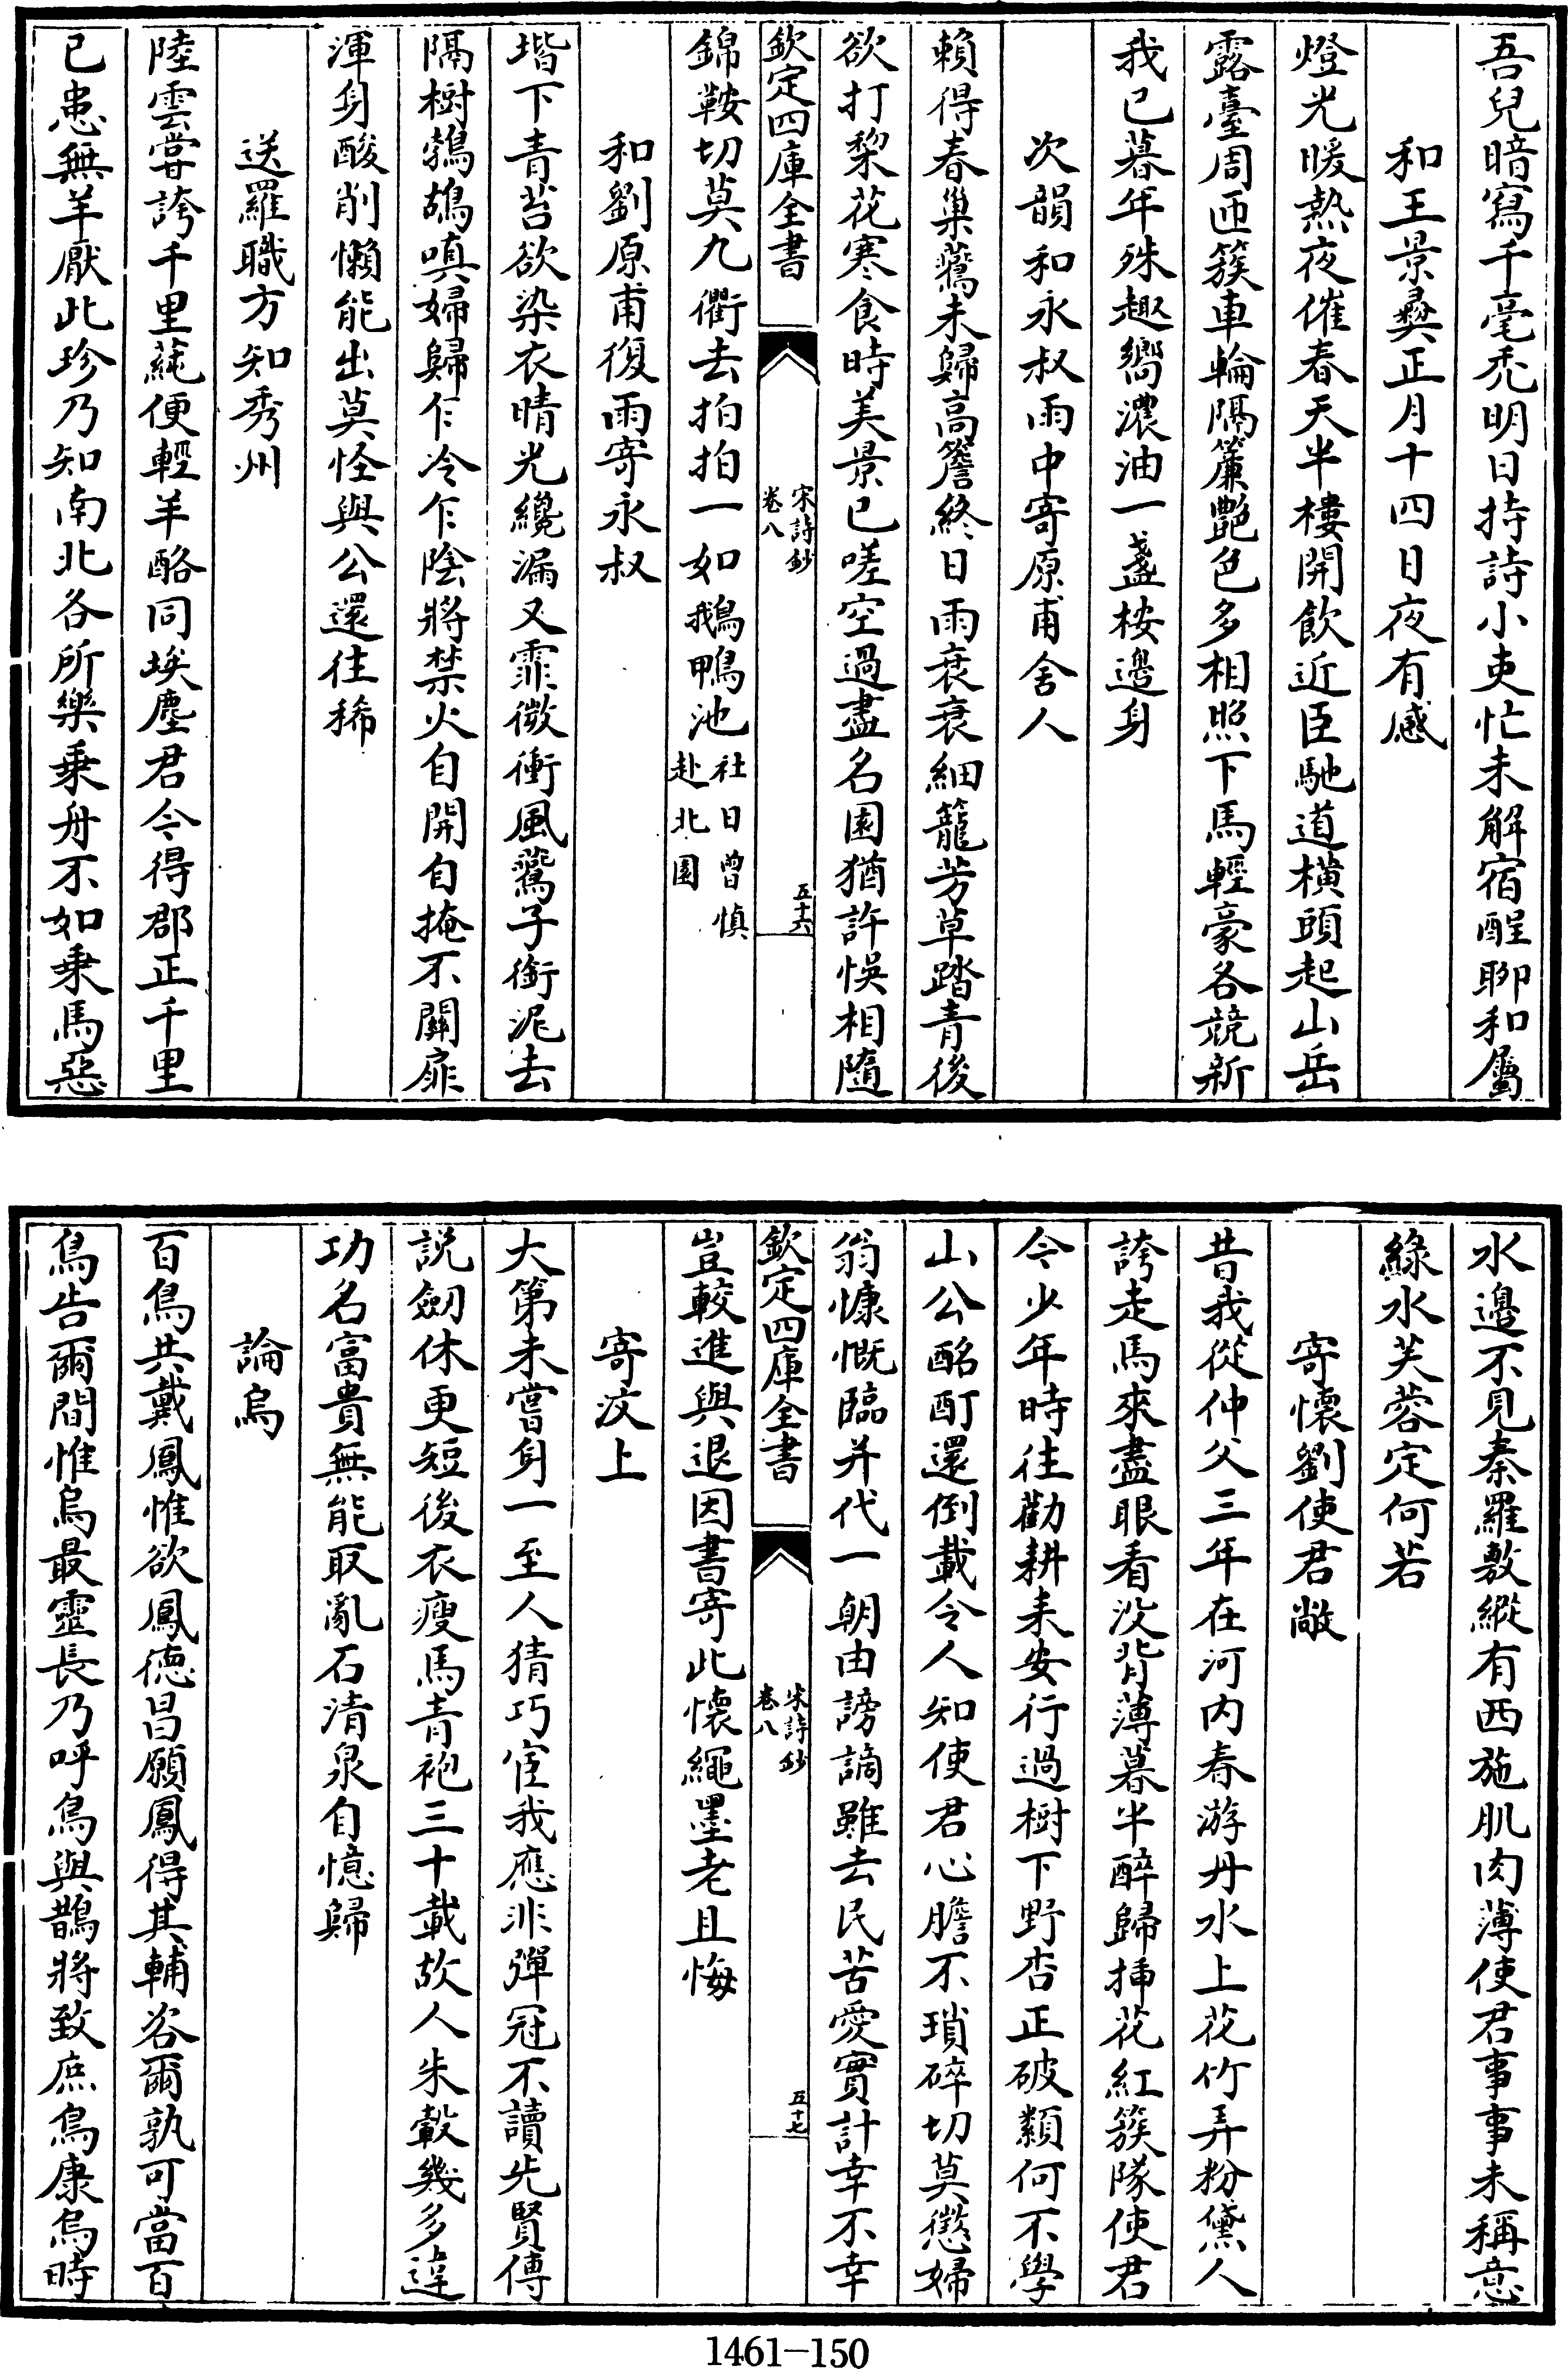 吾兒暗寫千毫禿明日持詩小吏忙未解宿酲聊和屬
和王景彝正月十四日夜有感
燈光暖熱夜催春天半樓開飲近臣馳道橫頭起山岳
露臺周匝簇車輪隔簾艷色多相照下馬輕豪各競新
我已暮年殊趣嚮濃油一盞桉邊身
次韻和永叔雨中寄原甫舍人
賴得春巢鷰未歸高簷終日雨衰衰細籠芳草踏青後
欲打棃花寒食時美景已嗟空過盡名園猶許悞相隨
欽定四庫全書
宋詩鈔
卷八
五十六
錦鞍切莫九衢去拍拍一如鵝鴨池社日曽慎
赴北園
和劉原甫復雨寄永叔
堦下青苔欲染衣晴光纔漏又霏微衝風鷰子銜泥去
隔樹鵓鴣嗔婦歸乍冷乍陰將禁火自開自掩不關扉
渾身酸削懶能出莫怪與公還往稀
送羅職方知秀州
陸雲甞誇千里蓴便輕羊酪同埃塵君今得郡正千里
已患無羊厭此珍乃知南北各所樂乗舟不如乗馬惡
水邊不見秦羅敷縱有西施肌肉薄使君事事未稱意
綠水芙蓉定何若
寄懷劉使君敞
昔我從仲父三年在河內春游丹水上花竹弄粉黛人
誇走馬來盡眼看沒背薄暮半醉歸揷花紅簇隊使君
今少年時往勸耕耒安行過樹下野杏正破纇何不學
山公酩酊還倒載令人知使君心膽不瑣碎切莫懲婦
翁慷慨臨并代一朝由謗謫雖去民苦愛實計幸不幸
欽定四庫全書
宋詩鈔
卷八
五十七
豈較進與退因書寄此懷繩墨老且悔
寄汶上
大第未嘗身一至人猜巧宦我應非彈冠不讀先賢傳
説劒休更短後衣瘦馬青袍三十載故人朱轂幾多違
功名富貴無能取亂石清泉自憶歸
諭烏
百鳥共戴鳳惟欲鳳德昌願鳳得其輔咨爾孰可當百
鳥告爾間惟烏最靈長乃呼鳥與鵲將致庶鳥康烏時
1461-150